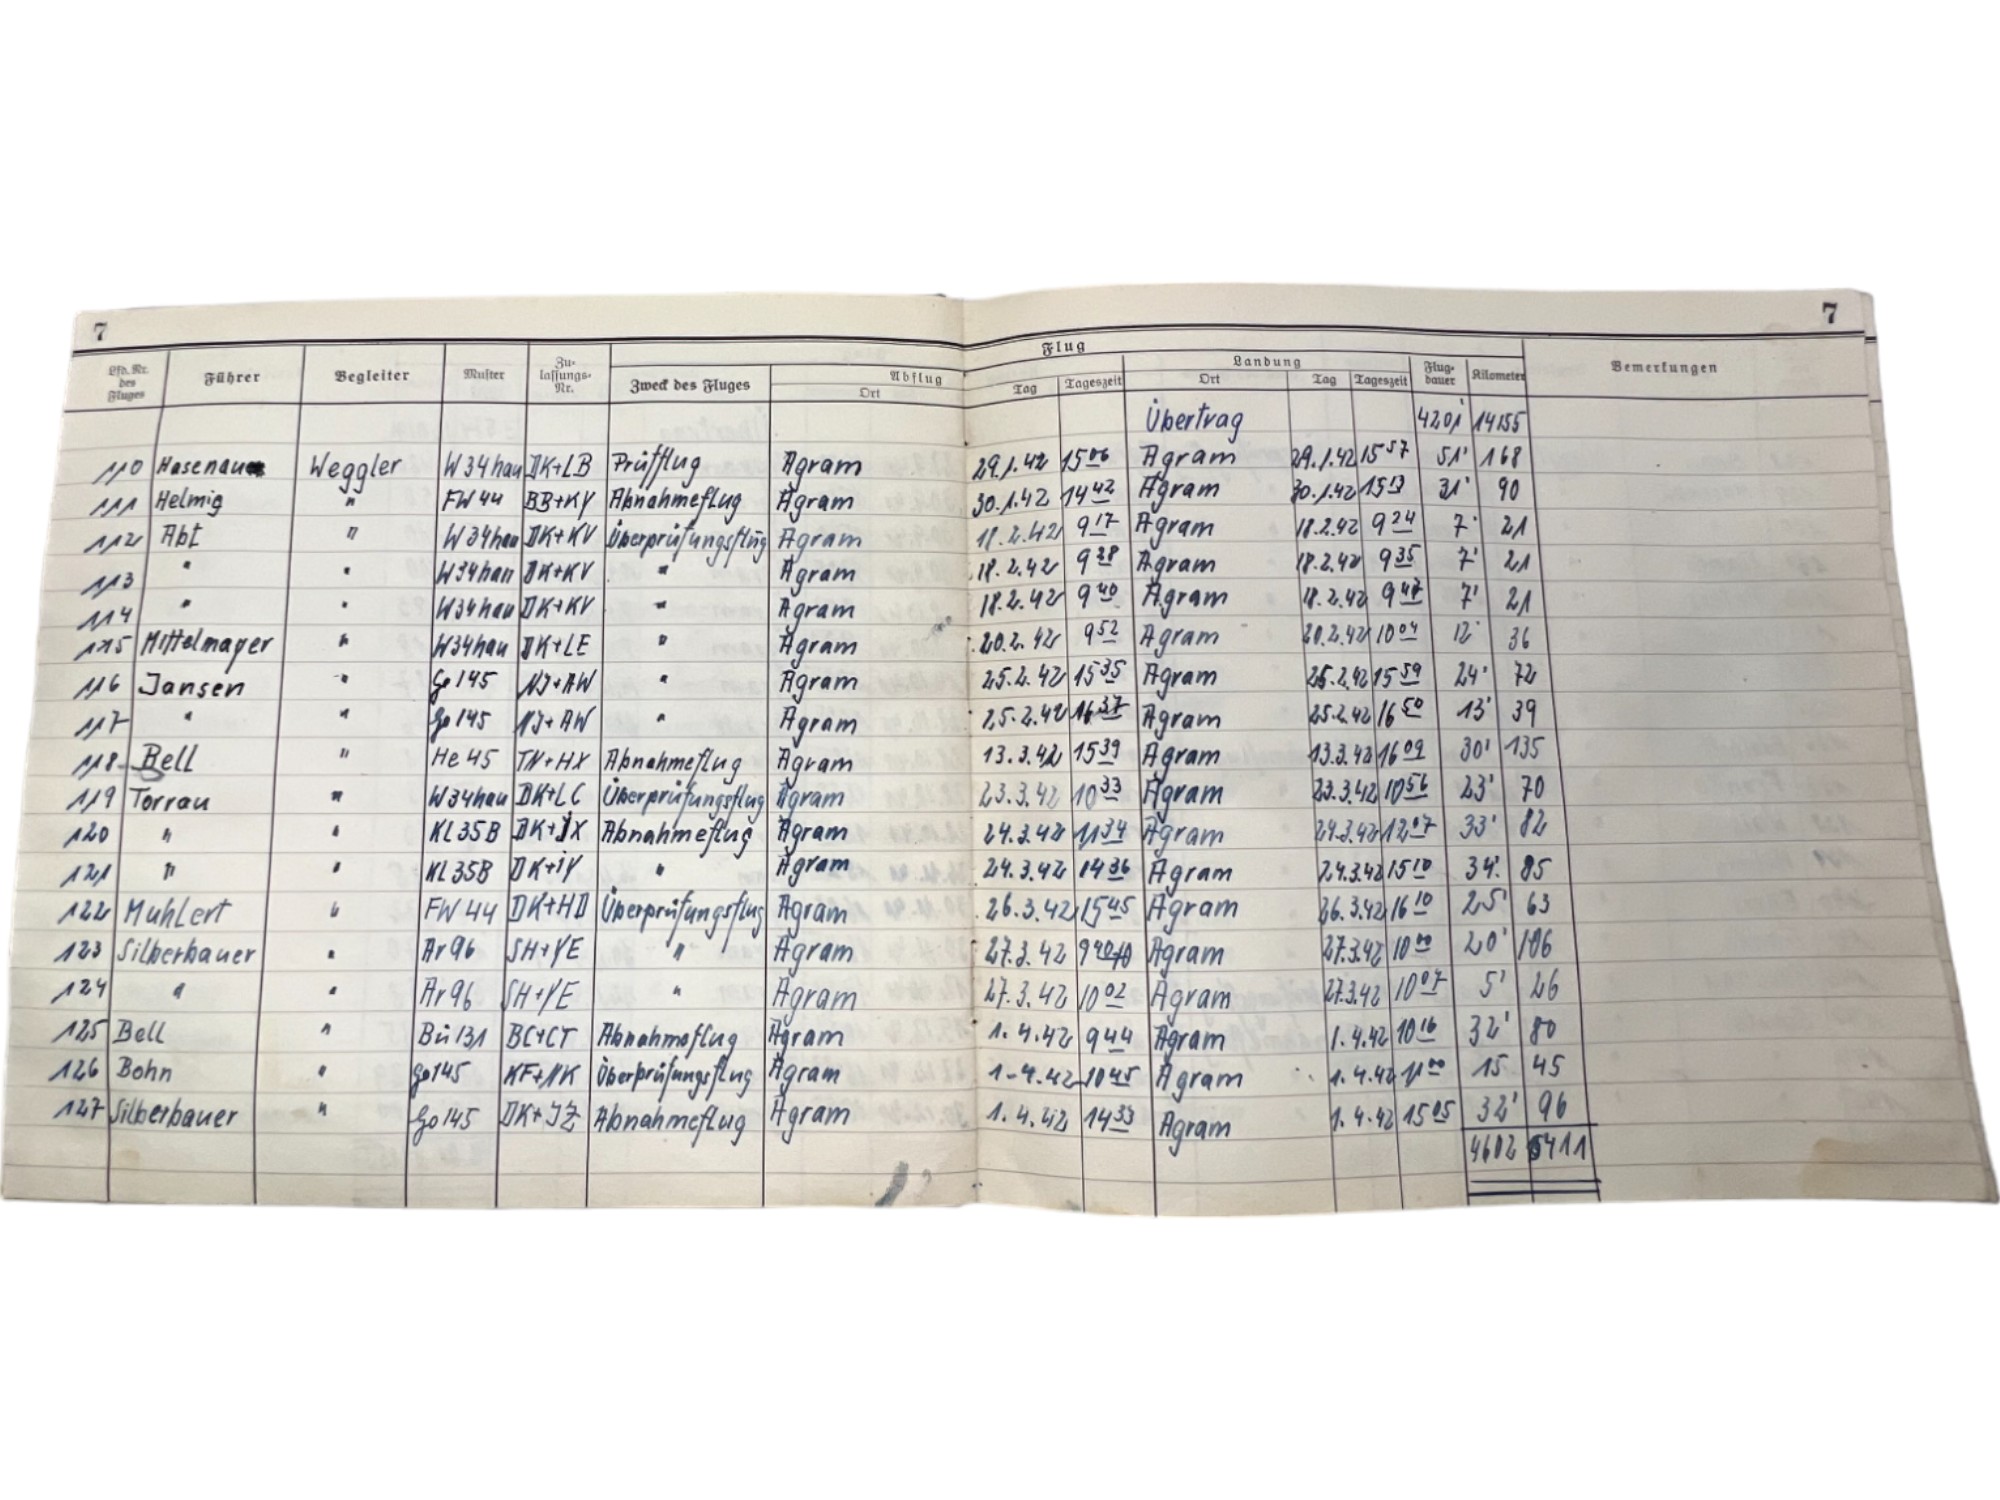 7 7
Flug
Lfd. Nr. des Fluges Führer Begleiter Muster Zulassungs-Nr. Zweck des Fluges Abflug Landung Flugdauer Kilometer Bemerkungen
Ort Tag Tageszeit Ort Tag Tageszeit
Übertrag 4201' 14155
110 Hasenau Weggler W34hau DK+LB Prüfflug Agram 29.1.42 15 06 Agram 29.1.42 15 57 51' 168
111 Helmig " FW 44 BB+KY Abnahmeflug Agram 30.1.42 14 42 Agram 30.1.42 15 13 31' 90
112 Abt " W34hau DK+KV Überprüfungsflüg Agram 18.2.42 9 17 Agram 18.2.42 9 24 7' 21
113 " " W34hau DK+KV " Agram 18.2.42 9 28 Agram 18.2.42 9 35 7' 21
114 " " W34hau DK+KV " Agram 18.2.42 9 40 Agram 18.2.42 9 47 7' 21
115 Mittelmayer " W34hau DK+LE " Agram 20.2.42 9 52 Agram 20.2.42 10 04 12' 36
116 Jansen " Go 145 NJ+AW " Agram 25.2.42 15 35 Agram 25.2.42 15 59 24' 72
117 " " Go 145 NJ+AW " Agram 25.2.42 16 37 Agram 25.2.42 16 50 13' 39
118 Bell " He 45 TN+HX Abnahmeflug Agram 13.3.42 15 39 Agram 13.3.42 16 09 30' 135
119 Torrau " W34hau DK+LC Überprüfungsflug Agram 23.3.42 10 33 Agram 23.3.42 10 56 23' 70
120 " " KL35B DK+JX Abnahmeflug Agram 24.3.42 11 34 Agram 24.3.42 12 07 33' 82
121 " " KL35B DK+iY " Agram 24.3.42 14 36 Agram 24.3.42 15 10 34' 85
122 Muhlert " FW 44 DK+HD Überprüfungsflug Agram 26.3.42 15 45 Agram 26.3.42 16 10 25' 63
123 Silberbauer " Ar 96 SH+YE " Agram 27.3.42 9 40 Agram 27.3.42 10 00 20' 106
124 " " Ar 96 SH+YE " Agram 27.3.42 10 02 Agram 27.3.42 10 07 5' 26
125 Bell " Bü 131 BC+CT Abnahmeflug Agram 1.4.42 9 44 Agram 1.4.42 10 16 32' 80
126 Bohn " Go 145 KF+NK Überprüfungsflug Agram 1.4.42 10 45 Agram 1.4.42 11 00 15 45
127 Silberbauer " Go 145 DK+JZ Abnahmeflug Agram 1.4.42 14 33 Agram 1.4.42 15 05 32' 96
4602 15411